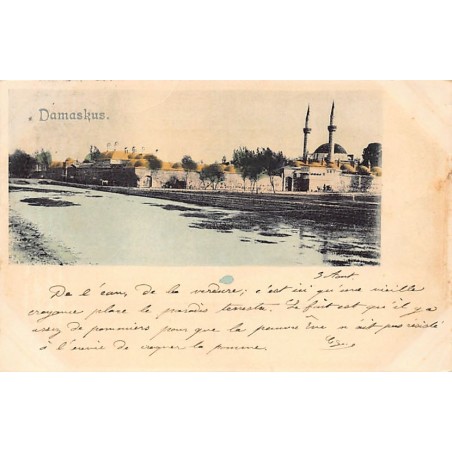 Damaskus.
3 Aout
De l'eau, de la verdure; c'est ici qu'une vieille
croyance place le paradis terrestre. Le fait est qu'il y a
assez de pommiers pour que la pauvre Ève n'ait pas résisté
à l'envie de croquer la pomme.